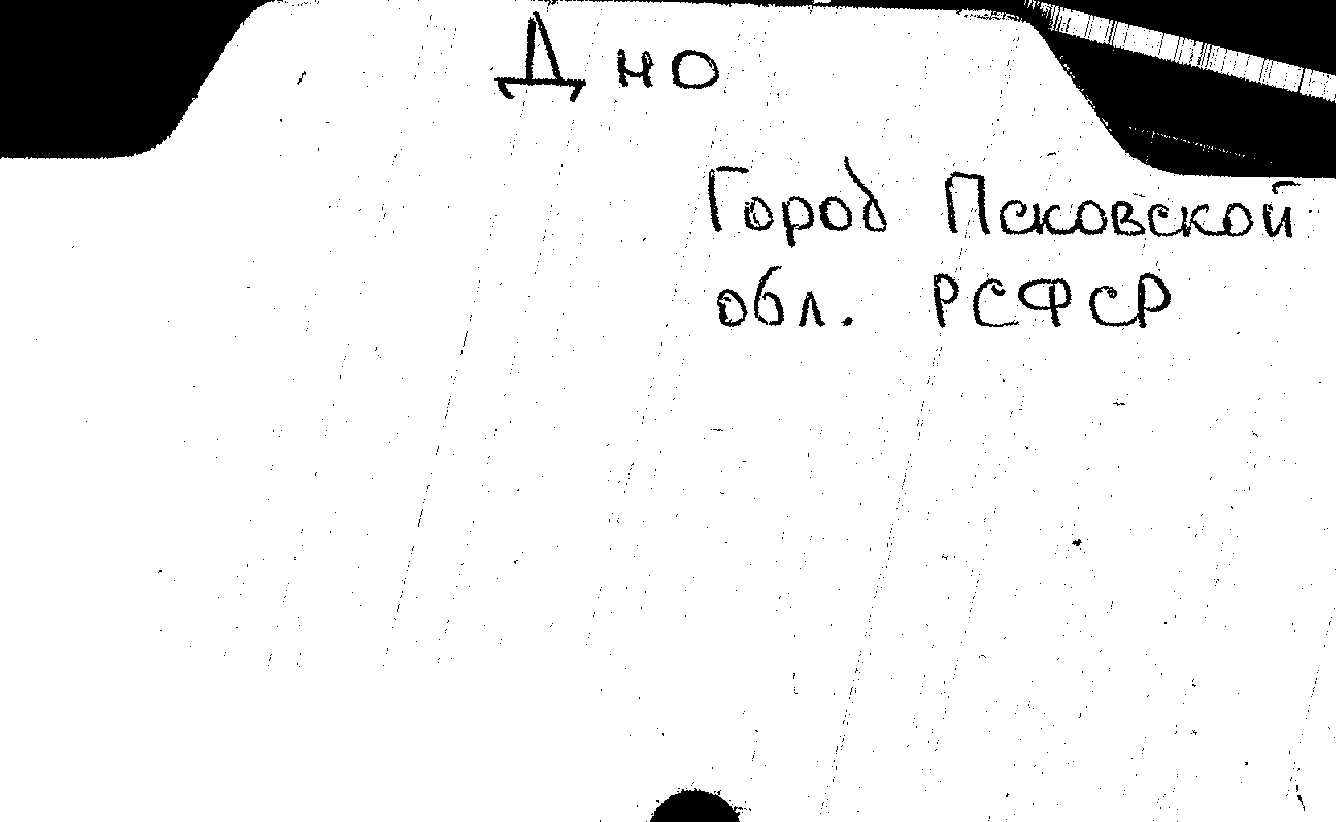 Дно
Город Псковской
обл. РСФСР